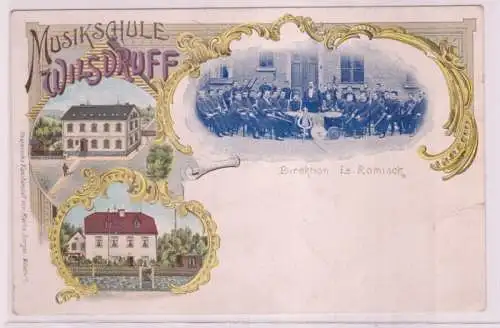 MUSIKSCHULE
WILSDRUFF
Direktion Ls. Römisch.